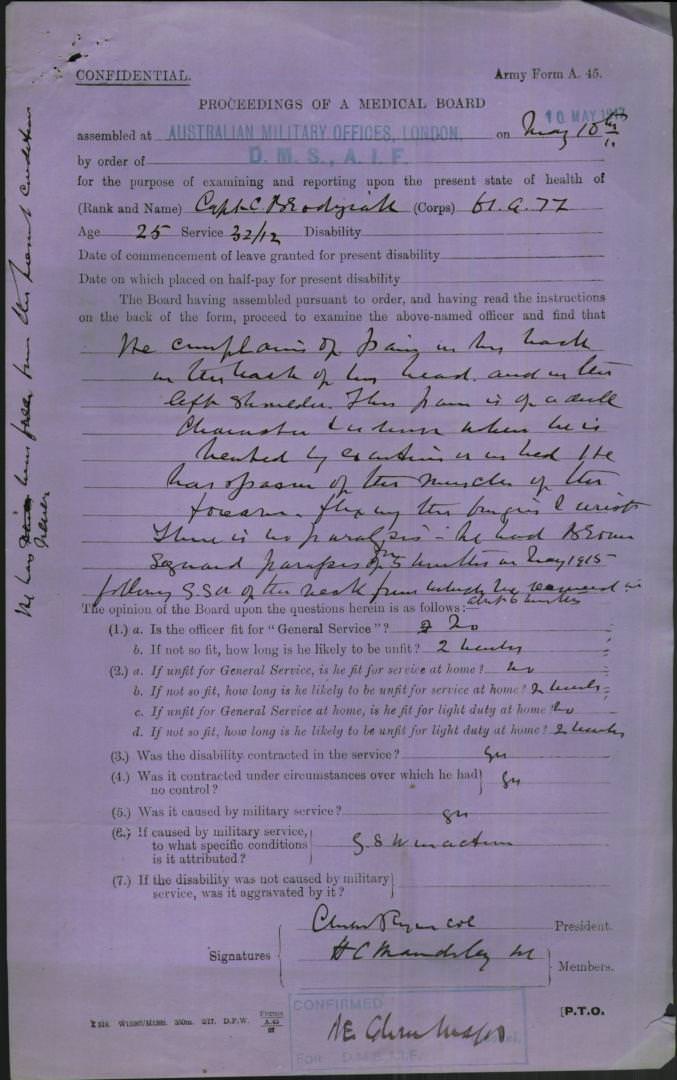 CONFIDENTIAL.
Army Form A. 45.
PROCEEDINGS OF A MEDICAL BOARD
10 MAY 1917
assembled at AUSTRALIAN MILITARY OFFICES, LONDON. on May 10th
by order of D. M. S., A. I. F.
for the purpose of examining and reporting upon the present state of health of
(Rank and Name) Capt C. (Corps)
Age 25 Service 32/12 Disability
Date of commencement of leave granted for present disability
Date on which placed on half-pay for present disability
The Board having assembled pursuant to order, and having read the instructions
on the back of the form, proceed to examine the above-named officer and find that
He complains of pain in his back
in the back of his head and in the
left shoulder. This pain is of a dull
character & is worse when he is
heated by exertion or in bed He
has spasm of the muscles of the
forearm flexing the fingers & wrist
There is no paralysis - he had Brown
Sequard paralysis for 5 months in May 1915
following G.S.W of the neck from which he recovered in
about 6 months
He has been free from the present condition
never
The opinion of the Board upon the questions herein is as follows:—
(1.) a. Is the officer fit for "General Service"? No
b. If not so fit, how long is he likely to be unfit? 2 months
(2.) a. If unfit for General Service, is he fit for service at home? No
b. If not so fit, how long is he likely to be unfit for service at home? 2 months
c. If unfit for General Service at home, is he fit for light duty at home? No
d. If not so fit, how long is he likely to be unfit for light duty at home? 2 months
(3.) Was the disability contracted in the service? Yes
(4.) Was it contracted under circumstances over which he had
no control? Yes
(5.) Was it caused by military service? Yes
(6.) If caused by military service,
to what specific conditions
is it attributed? G.S.W in action
(7.) If the disability was not caused by military
service, was it aggravated by it?
Signatures
Col President.
H C Maudsley Members.
[P.T.O.
Forms
A.45
CONFIRMED
For D.M.S. A.I.F.